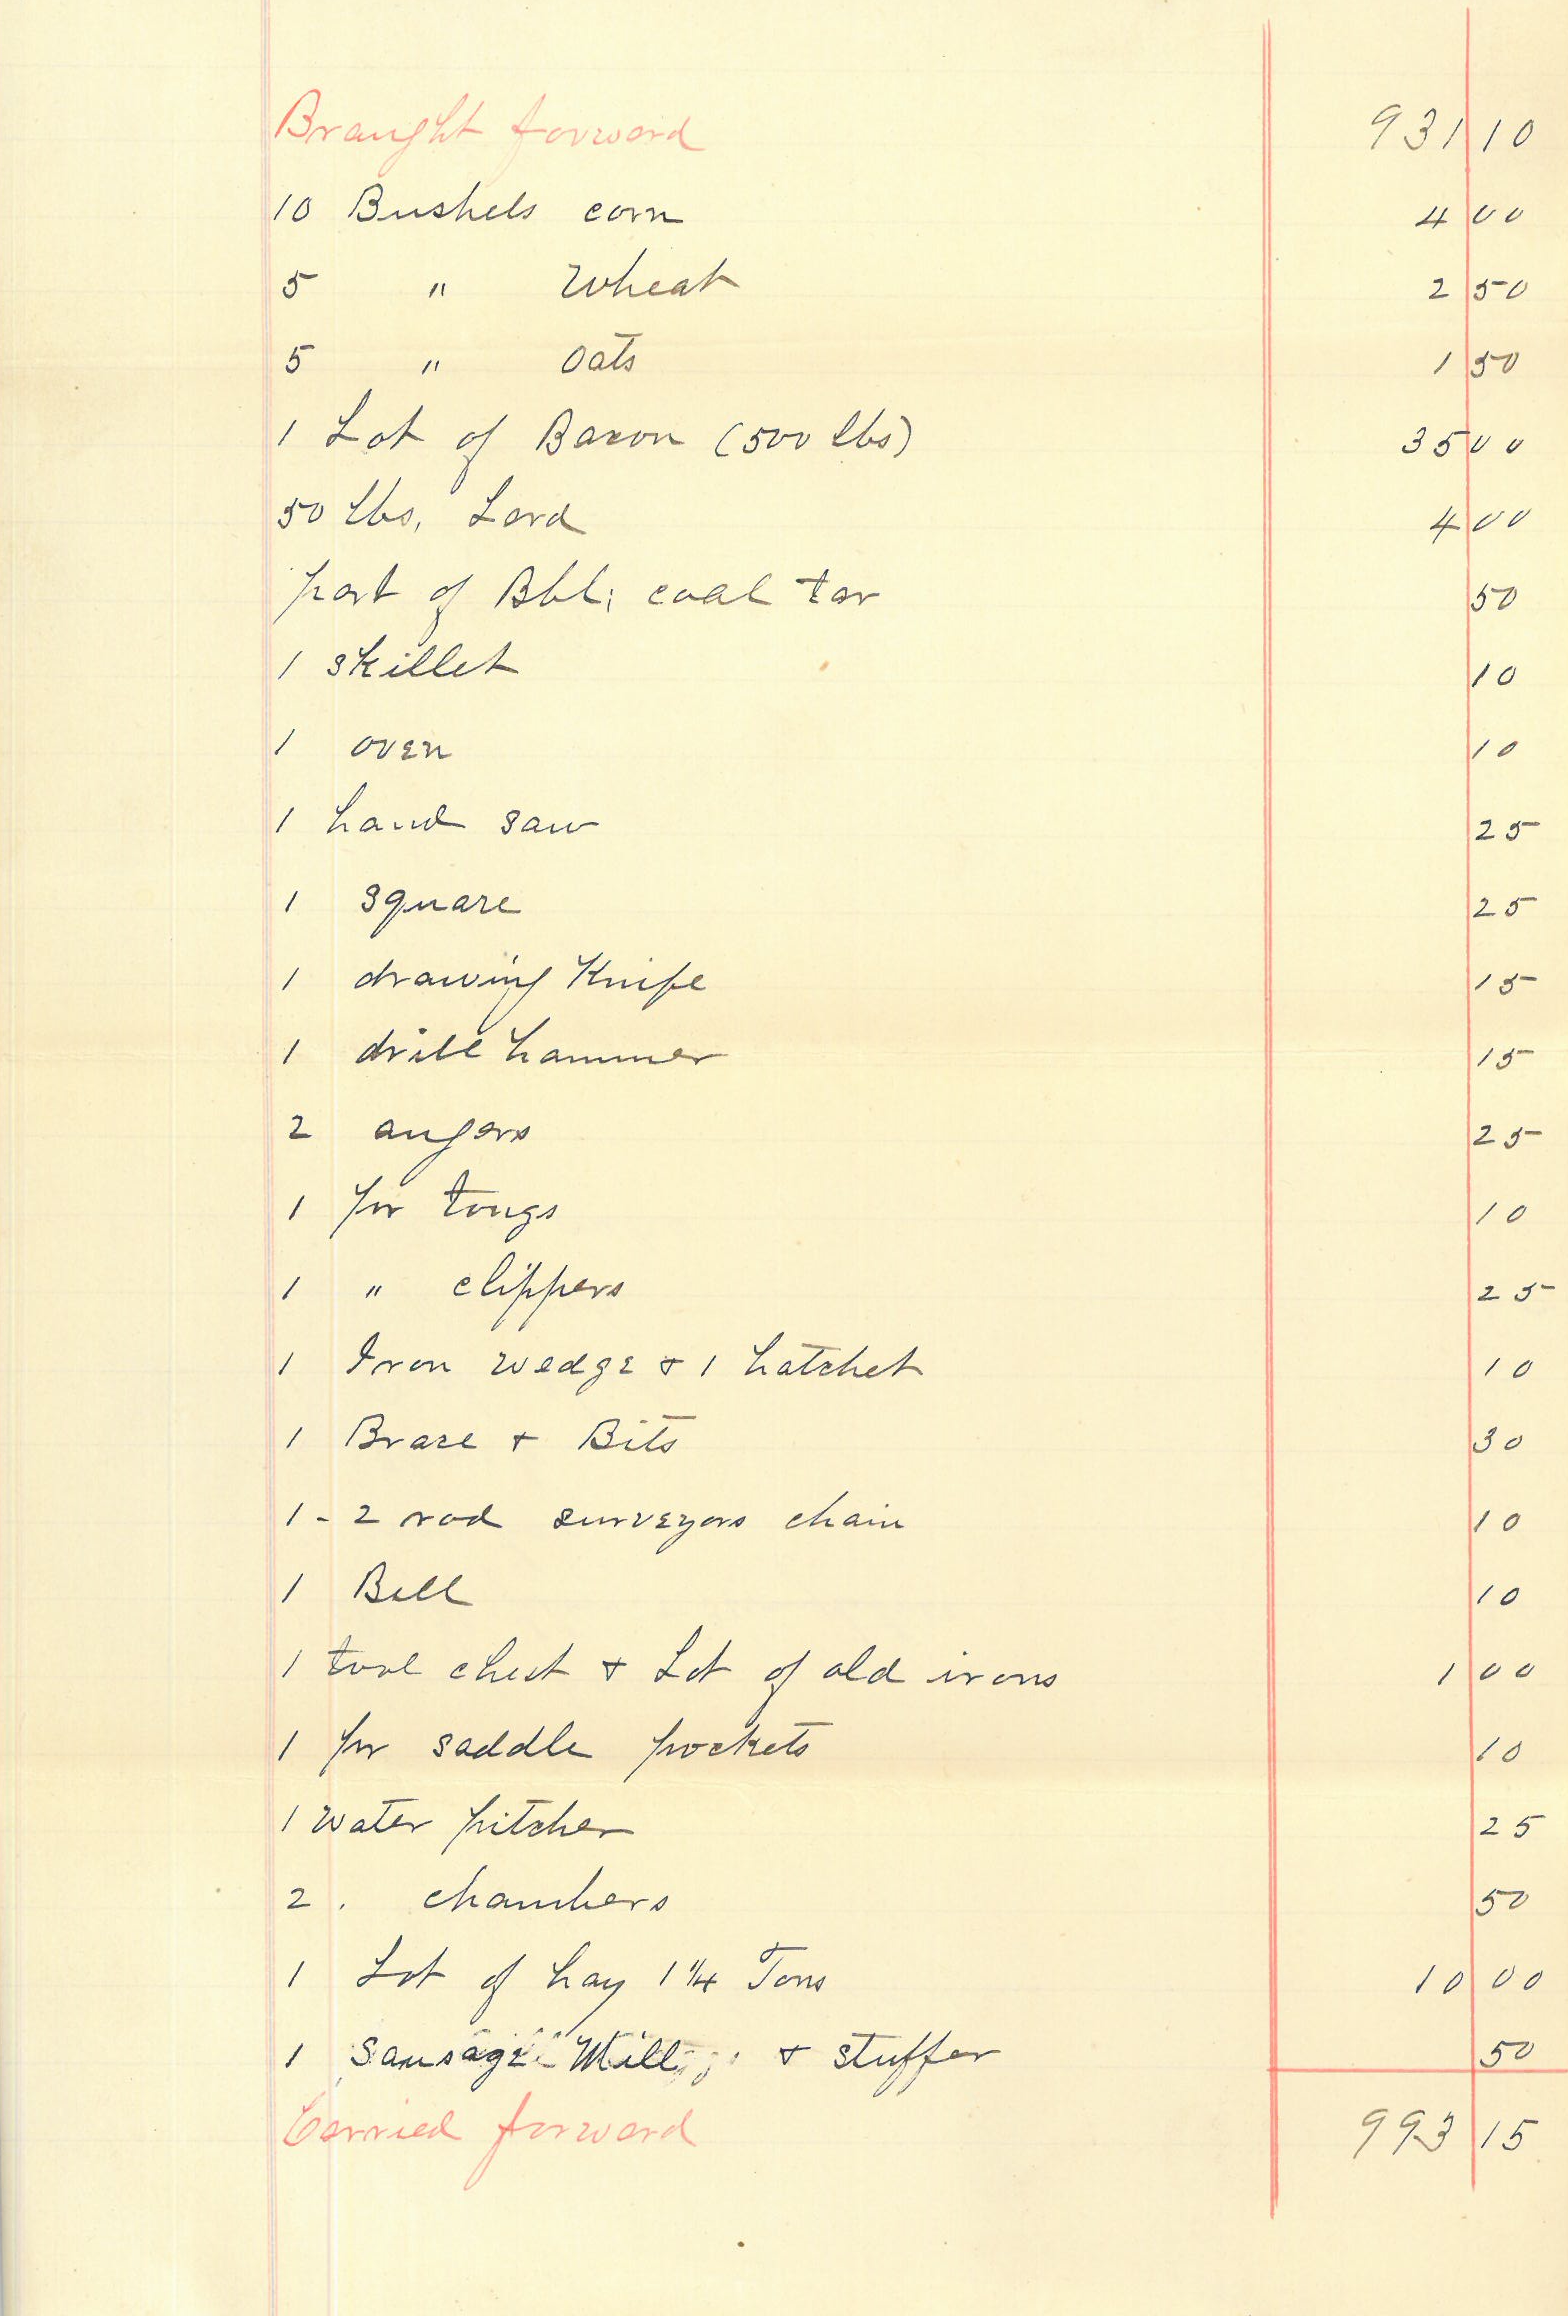 Braught forward 931 10
10 Bushels corn 4 00
5 " Wheat 2 50
5 " Oats 1 50
1 Lot of Bacon (500 lbs) 35 00
50 lbs, Lard 4 00
part of Bbl; coal tar 50
1 skillet 10
1 oven 10
1 hand saw 25
1 square 25
1 drawing Knife 15
1 drill hammer 15
2 augers 25
1 pr tongs 10
1 " clippers 25
1 Iron wedge + 1 hatchet 10
1 Brace + Bits 30
1 - 2 rod surveyors chain 10
1 Bell 10
1 tool chest + Lot of old irons 1 00
1 pr saddle pockets 10
1 water pitcher 25
2 . chambers 50
1 Lot of hay 1 1/4 Tons 10 00
1 Sausage Mill + stuffer 50
Carried forward 993 15